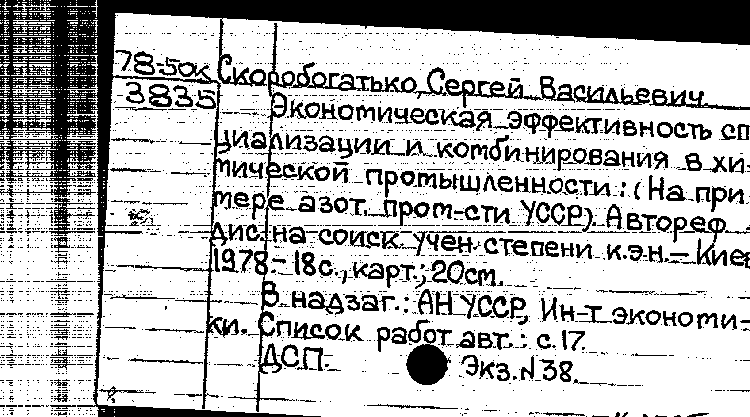 78-50к Скоробогатько, Сергей Васильевич
3835 Экономическая эффективность сп
циализации и комбинирования в хи-
мической промышленности: (На при
мере азот. пром-сти УССР). Автореф
дис. на соиск. учен. степени к.э.н. - Киев
1978. - 18с., карт.; 20см.
В надзаг.: АН УССР, Ин-т экономи-
ки. Список работ авт.: с. 17.
ДСП. Экз. N 38.